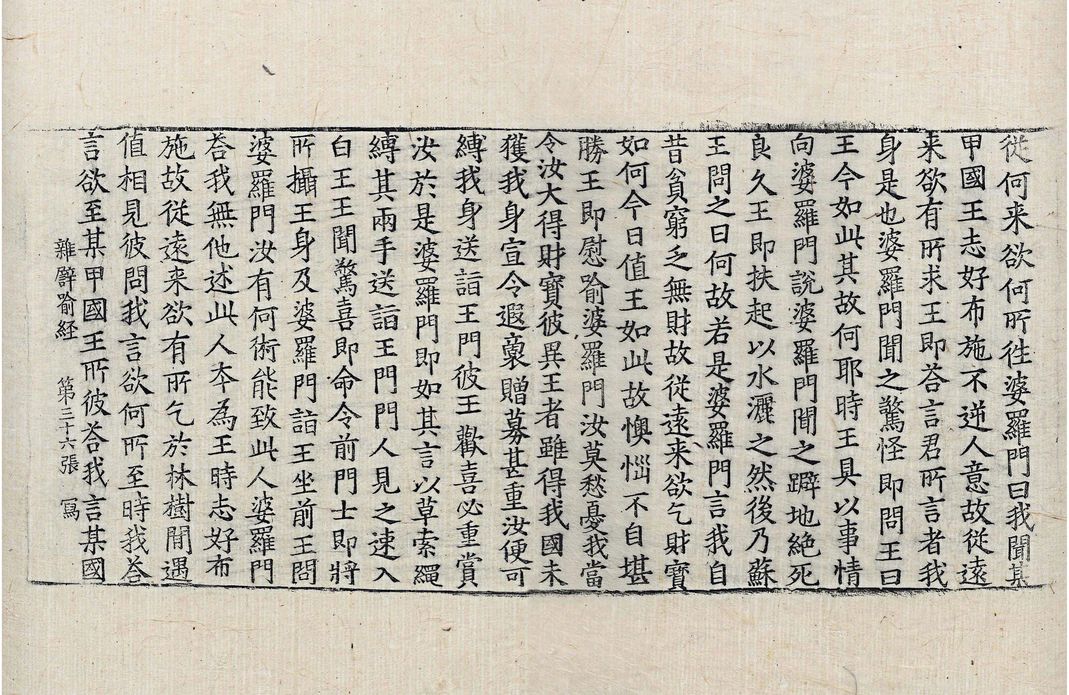 從何来欲何所徃婆羅門曰我聞某
甲國王志好布施不逆人意故從遠
来欲有所求王即荅言君所言者我
身是也婆羅門聞之驚怪即問王曰
王今如此其故何耶時王具以事情
向婆羅門說婆羅門聞之躃地絶死
良久王即扶起以水灑之然後乃蘇
王問之曰何故若是婆羅門言我自
昔貧窮乏無財故從遠来欲乞財寶
如何今日值王如此故懊惱不自堪
勝王即慰喻婆羅門汝莫愁憂我當
令汝大得財寶彼異王者雖得我國未
獲我身宣令遐裏贈募甚重汝便可
縛我身送詣王門彼王歡喜必重賞
汝於是婆羅門即如其言以草索繩
縛其兩手送詣王門門人見之速入
白王王聞驚喜即命令前門士即將
所攝王身及婆羅門詣王坐前王問
婆羅門汝有何術能致此人婆羅門
荅我無他述此人夲為王時志好布
施故從遠来欲有所乞於林樹閒遇
值相見彼問我言欲何所至時我荅
言欲至某甲國王所彼荅我言某國
雜譬喻経 第三十六張 寫